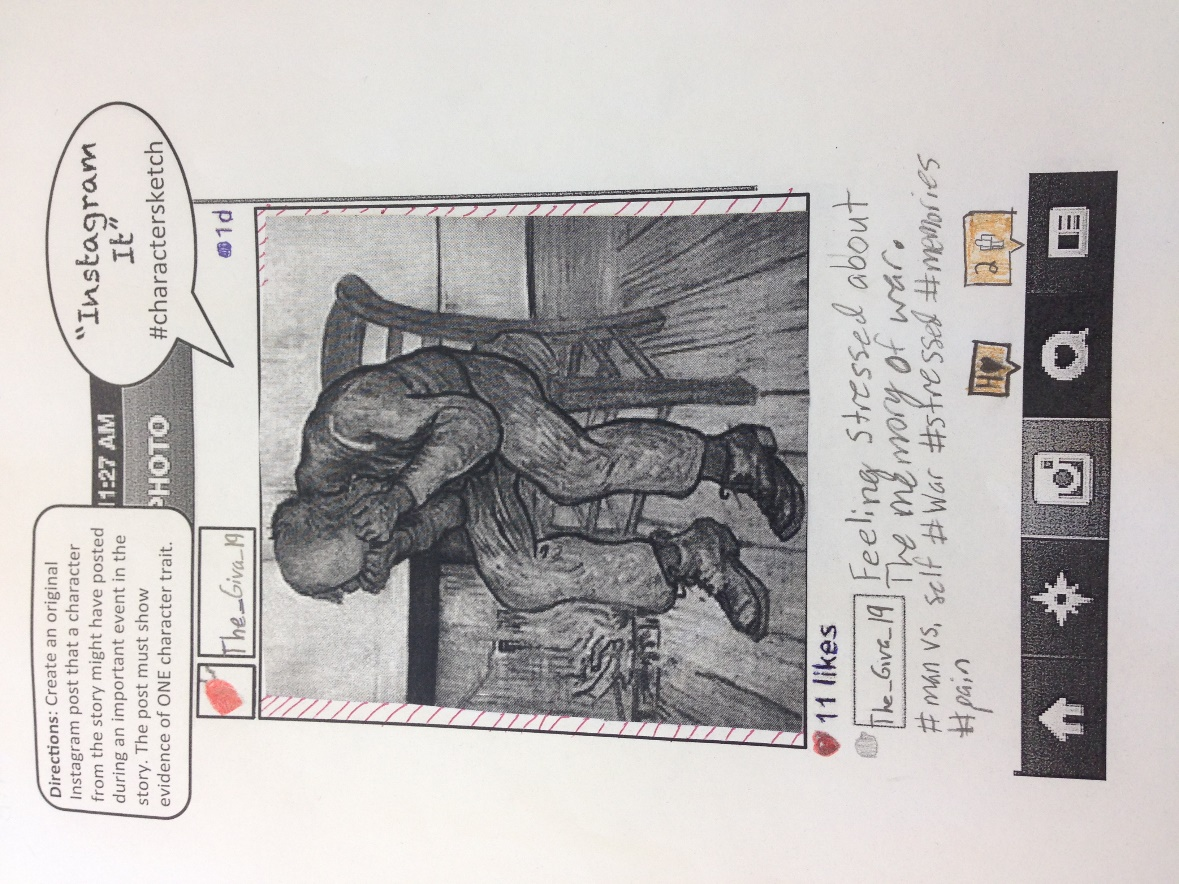 Directions: Create an original
Instagram post that a character
from the story might have posted
during an important event in the
story. The post must show
evidence of ONE character trait.
"Instagram
It"
#charactersketch
1:27 AM
PHOTO
The_Giva_19
1d
11 likes
The_Giva_19 Feeling stressed about
The memory of war.
#man vs. self #War #stressed #memories
#pain
H♥
2